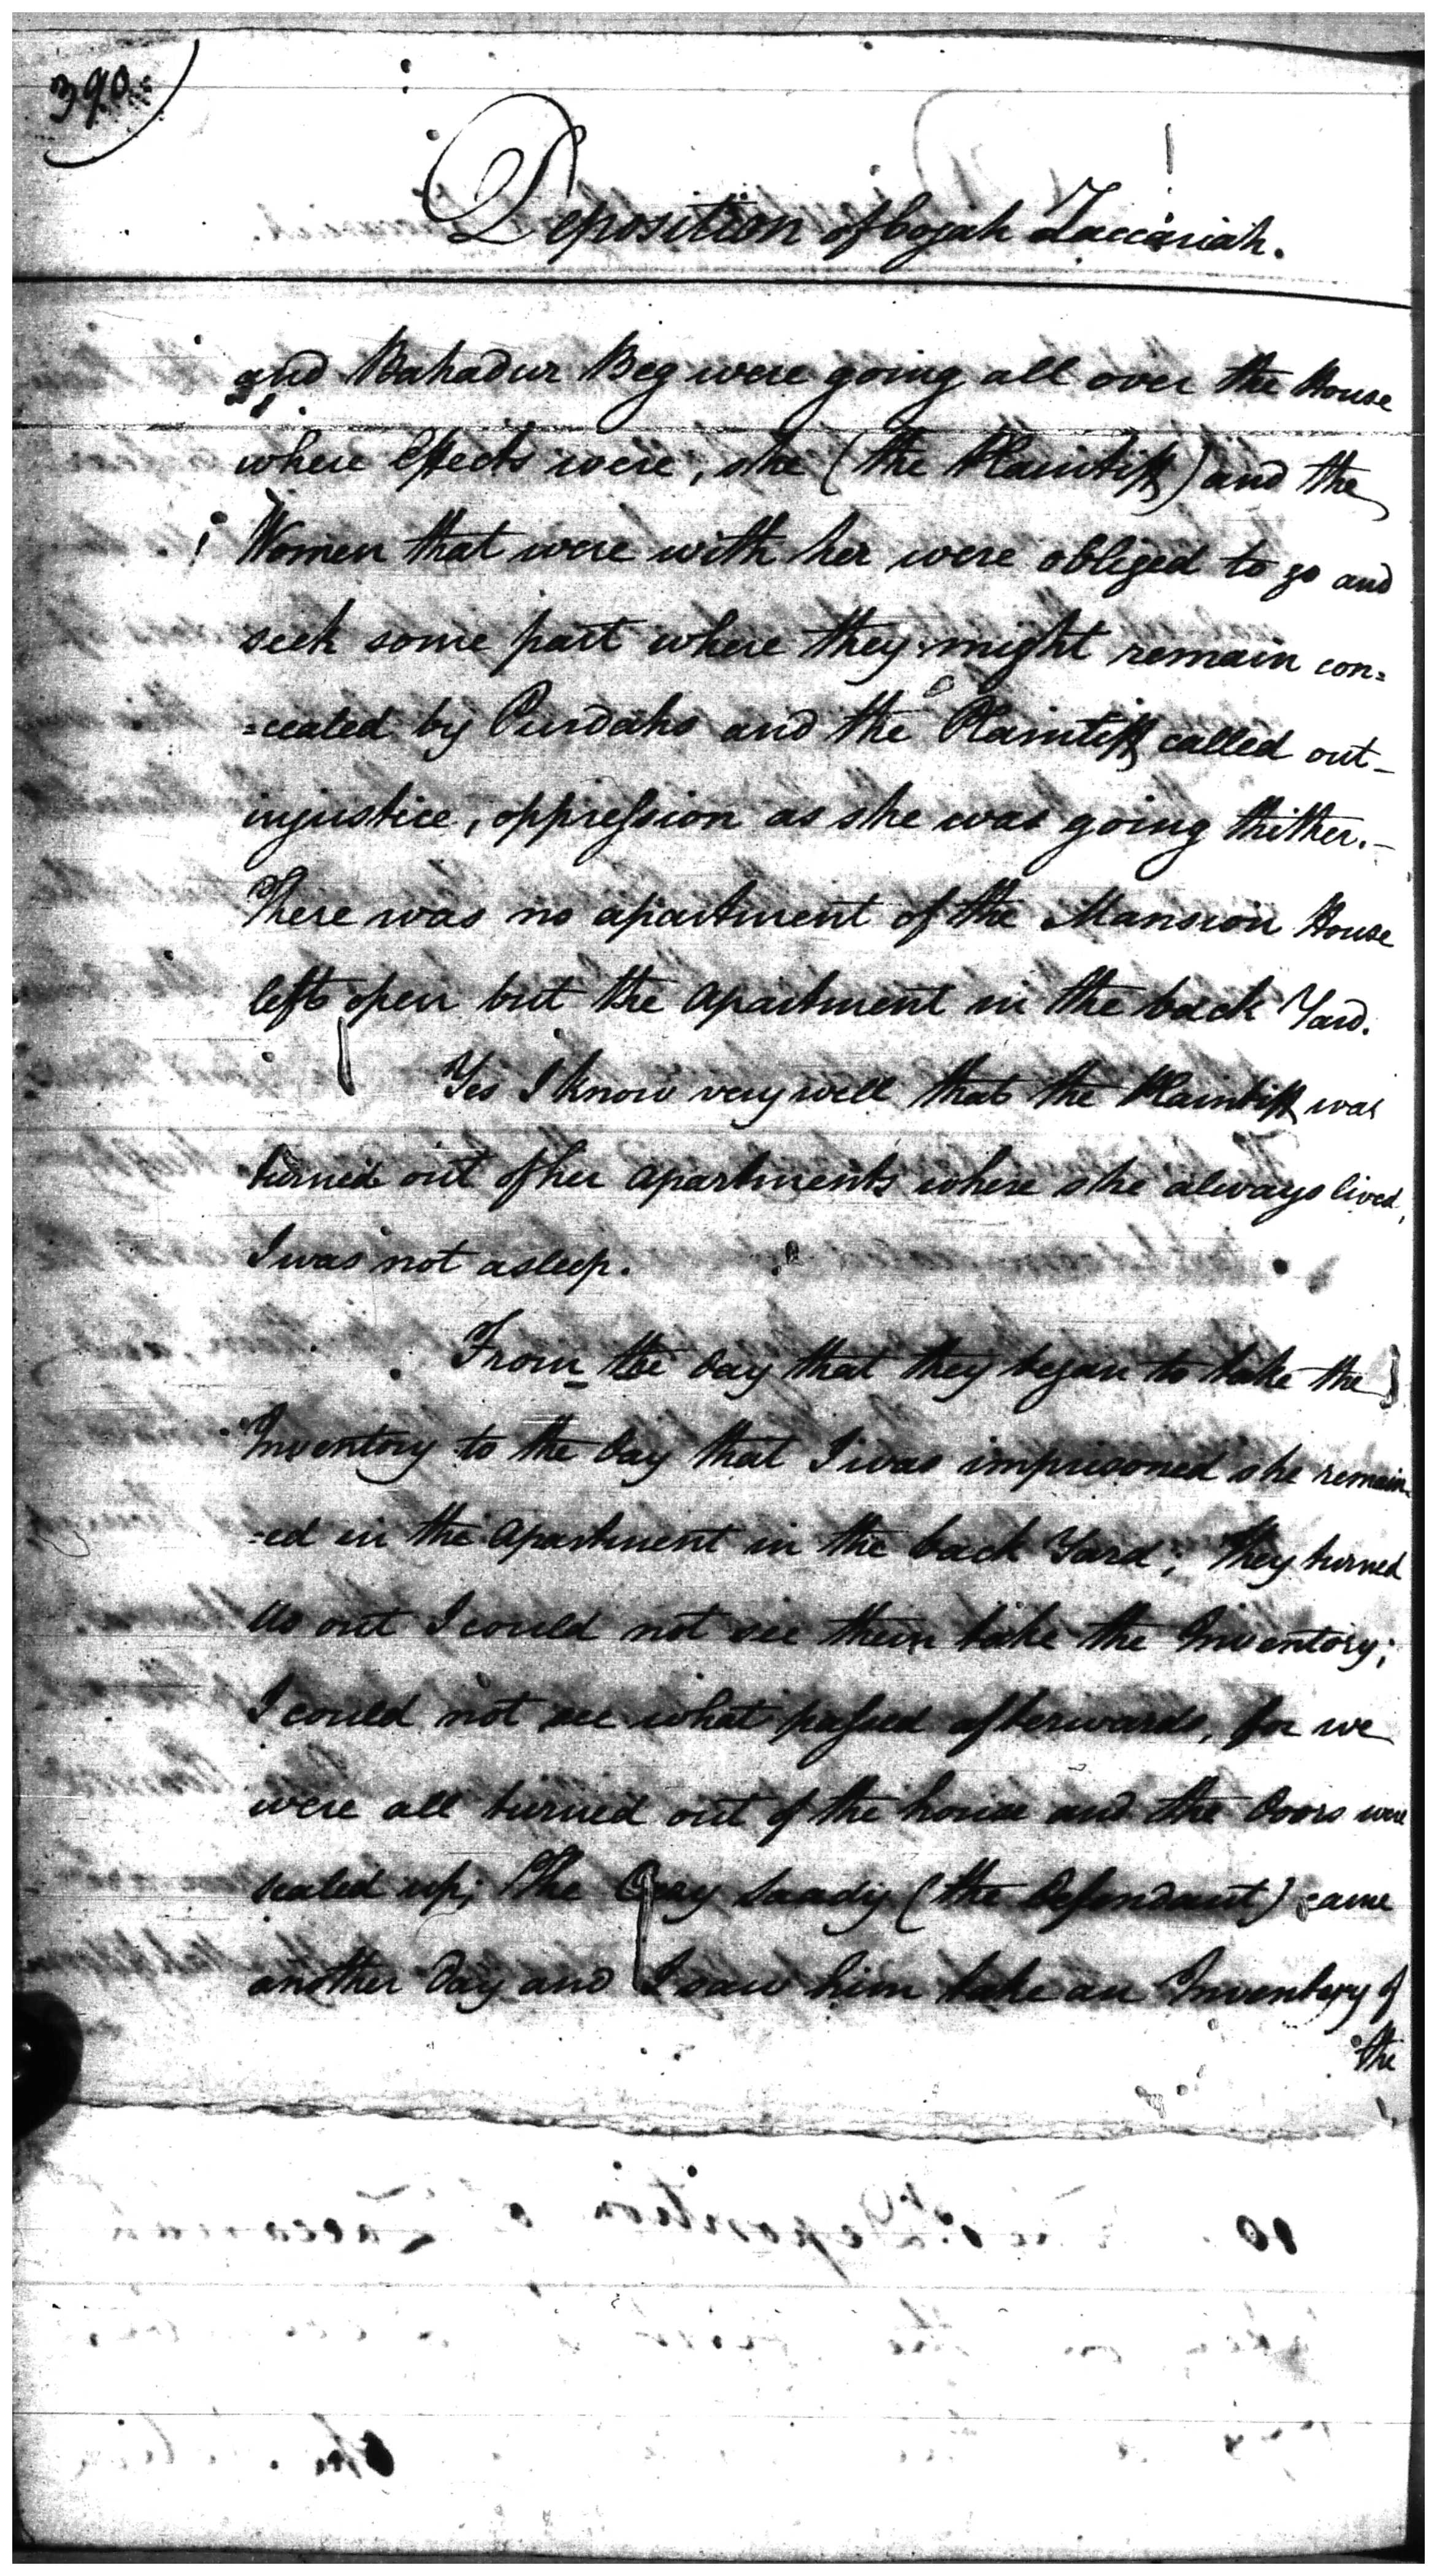 390
Deposition of Cojah Zaccariah.
and Bahadur Beg were going all over the House
where Effects were, she (the Plaintiff) and the
Women that were with her were obliged to go and
seek some part where they might remain con=
=cealed by Purdahs and the Plaintiff called out_
injustice, oppression as she was going thither._
There was no apartment of the Mansion House
left open but the apartment in the back Yard.
Yes I know very well that the Plaintiff was
turned out of her apartments where she always lived,
I was not asleep.
From the day that they began to take the
Inventory to the day that I was imprisoned she remain=
=ed in the apartment in the back Yard; they turned
us out I could not see them take the Inventory;
I could not see what passed afterwards, for we
were all turned out of the house and the doors were
sealed up; The Cazy Saadi (the Defendant) came
another day and I saw him take an Inventory of
the